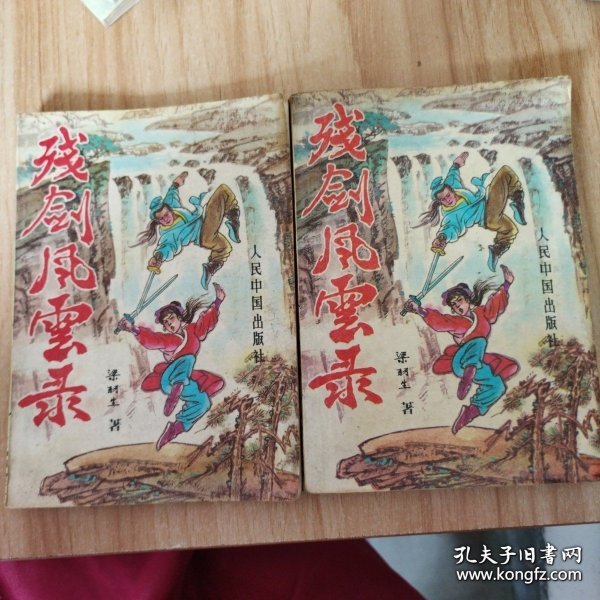 残剑风雲录
人民中国出版社
梁羽生 著
残剑风雲录
人民中国出版社
梁羽生 著
孔夫子旧书网
www.kongfz.com